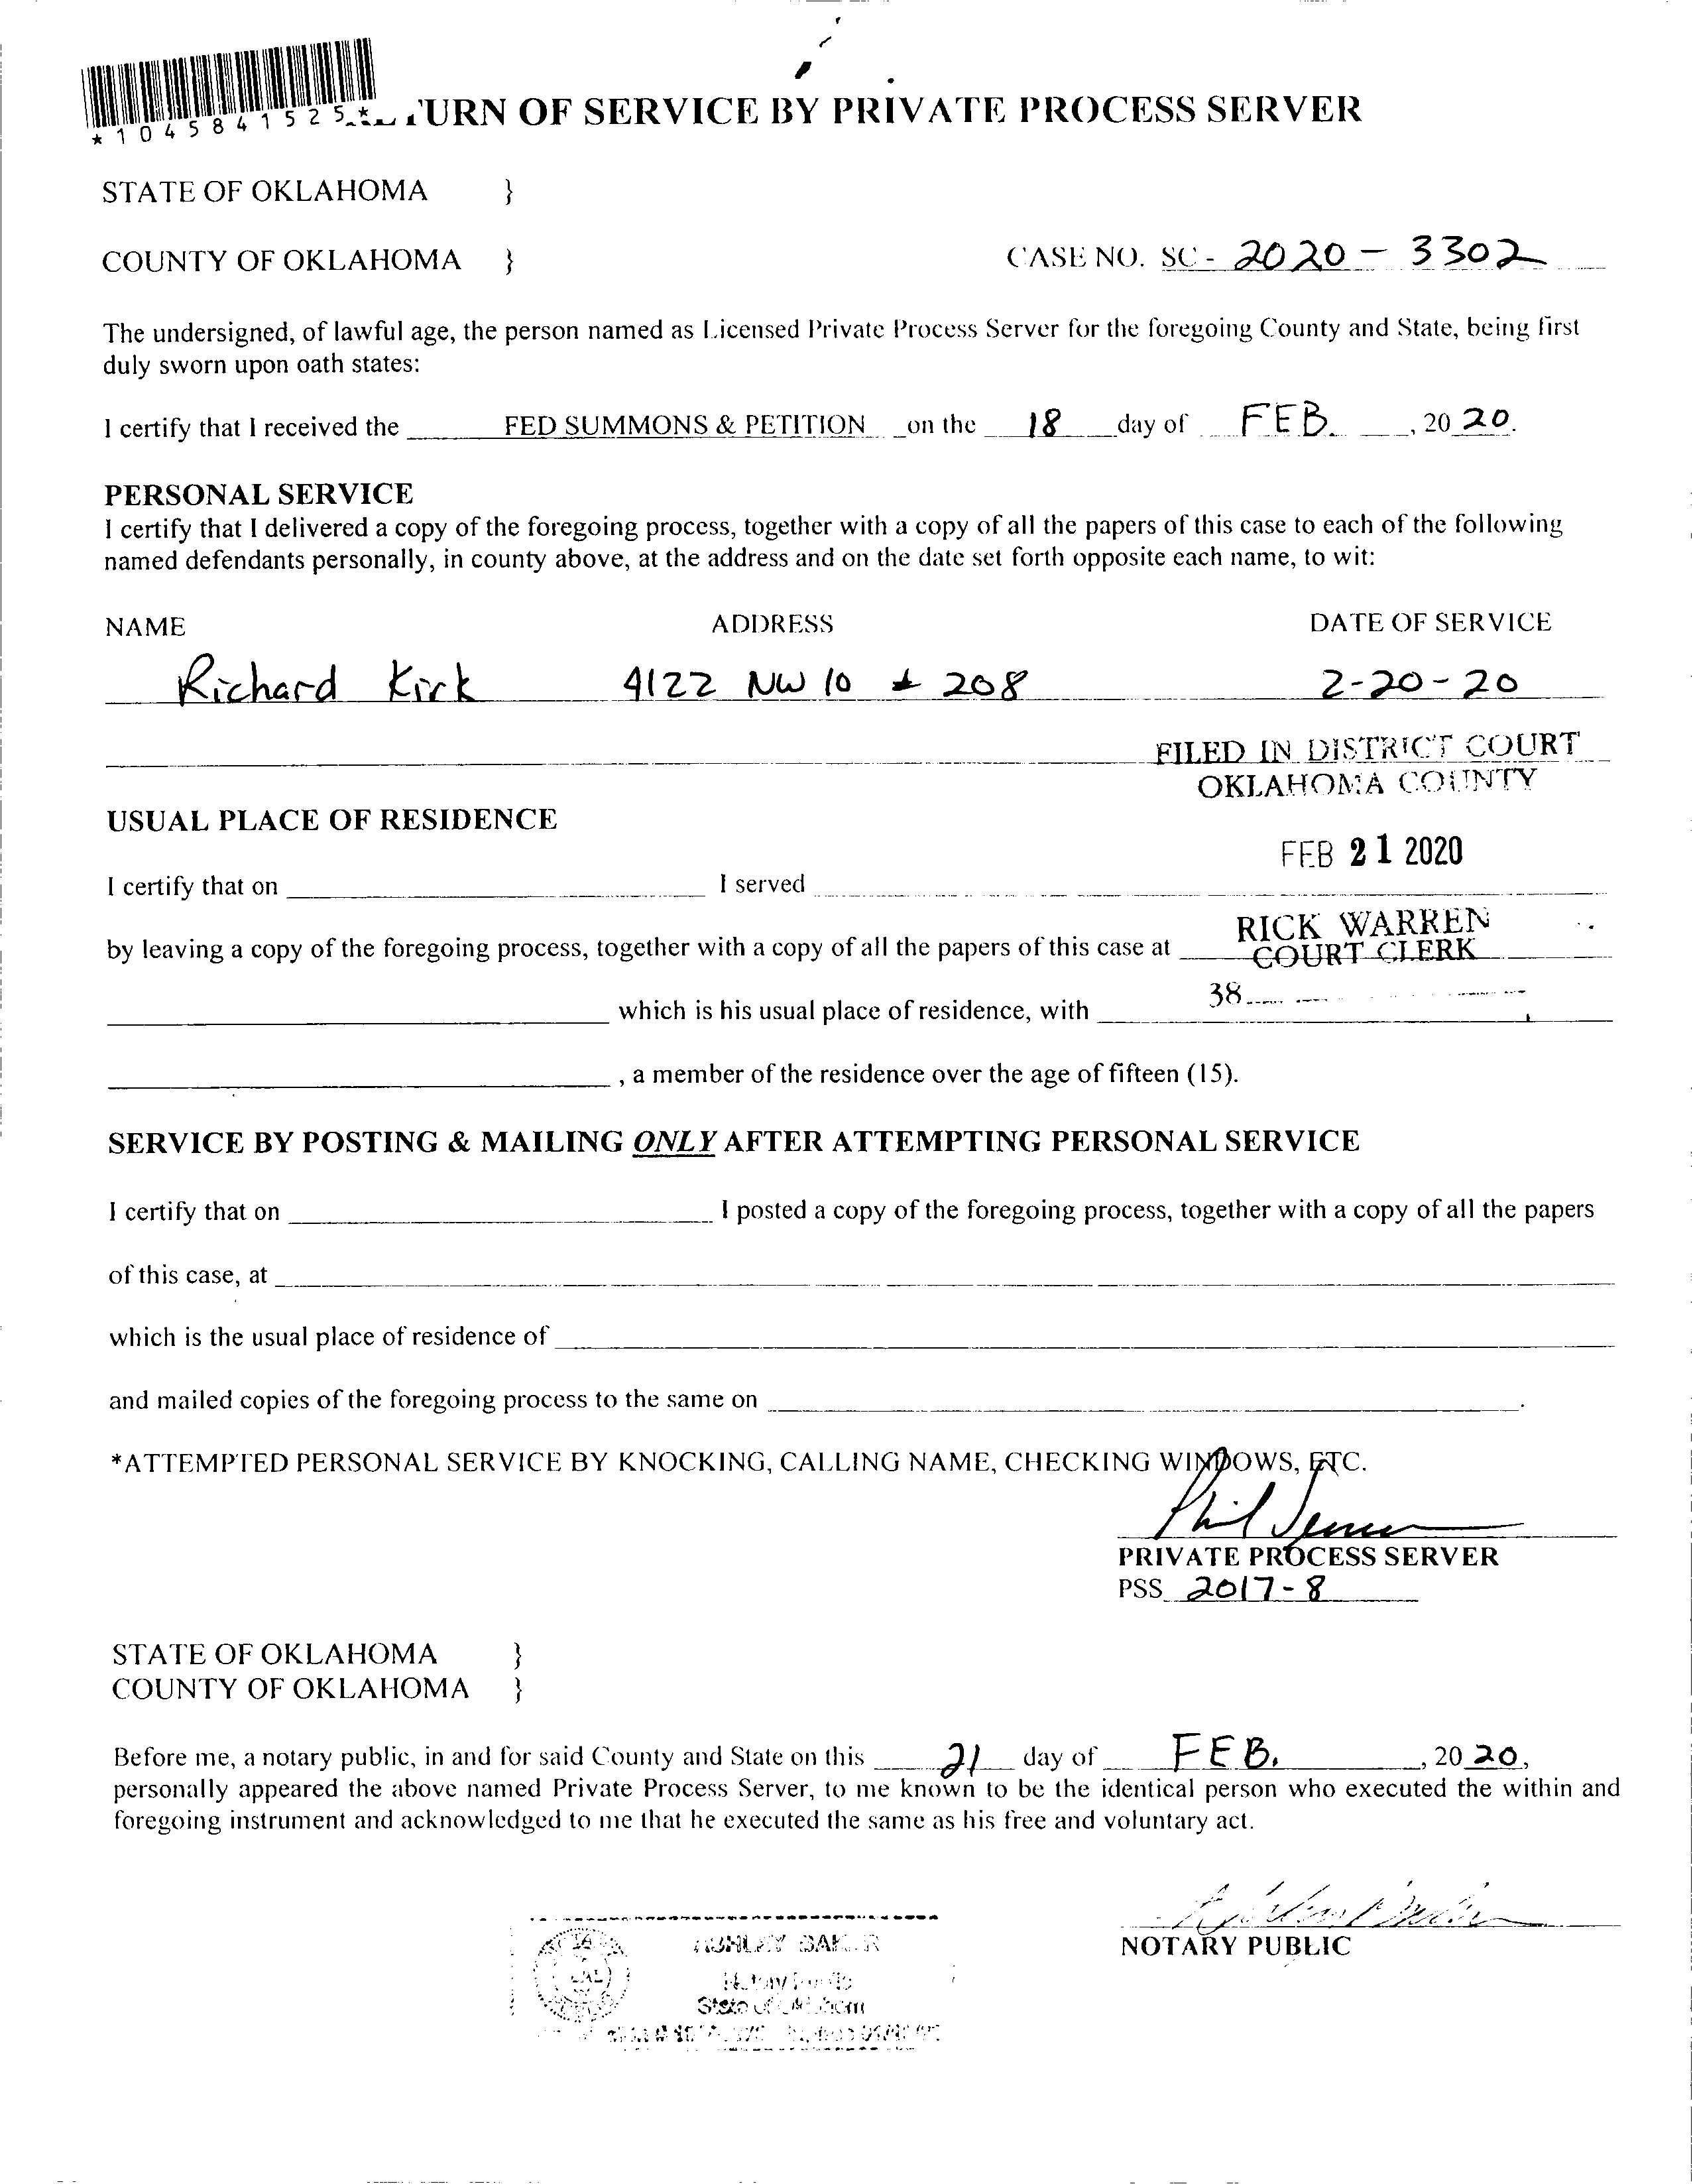 *1045841525*
TURN OF SERVICE BY PRIVATE PROCESS SERVER
STATE OF OKLAHOMA }
COUNTY OF OKLAHOMA } CASE NO. SC - 2020 - 3302
The undersigned, of lawful age, the person named as Licensed Private Process Server for the foregoing County and State, being first
duly sworn upon oath states:
I certify that I received the FED SUMMONS & PETITION on the 18 day of FEB. , 20 20.
PERSONAL SERVICE
I certify that I delivered a copy of the foregoing process, together with a copy of all the papers of this case to each of the following
named defendants personally, in county above, at the address and on the date set forth opposite each name, to wit:
NAME ADDRESS DATE OF SERVICE
Richard Kirk 4122 NW 10 # 208 2-20-20
FILED IN DISTRICT COURT
OKLAHOMA COUNTY
USUAL PLACE OF RESIDENCE
FEB 21 2020
I certify that on I served
RICK WARREN
by leaving a copy of the foregoing process, together with a copy of all the papers of this case at COURT CLERK
38
which is his usual place of residence, with
, a member of the residence over the age of fifteen (15).
SERVICE BY POSTING & MAILING ONLY AFTER ATTEMPTING PERSONAL SERVICE
I certify that on I posted a copy of the foregoing process, together with a copy of all the papers
of this case, at
which is the usual place of residence of
and mailed copies of the foregoing process to the same on .
*ATTEMPTED PERSONAL SERVICE BY KNOCKING, CALLING NAME, CHECKING WINDOWS, ETC.
Phil
PRIVATE PROCESS SERVER
PSS 2017-8
STATE OF OKLAHOMA }
COUNTY OF OKLAHOMA }
Before me, a notary public, in and for said County and State on this 21 day of FEB. , 20 20,
personally appeared the above named Private Process Server, to me known to be the identical person who executed the within and
foregoing instrument and acknowledged to me that he executed the same as his free and voluntary act.
NOTARY PUBLIC
Notary Public
State of Oklahoma